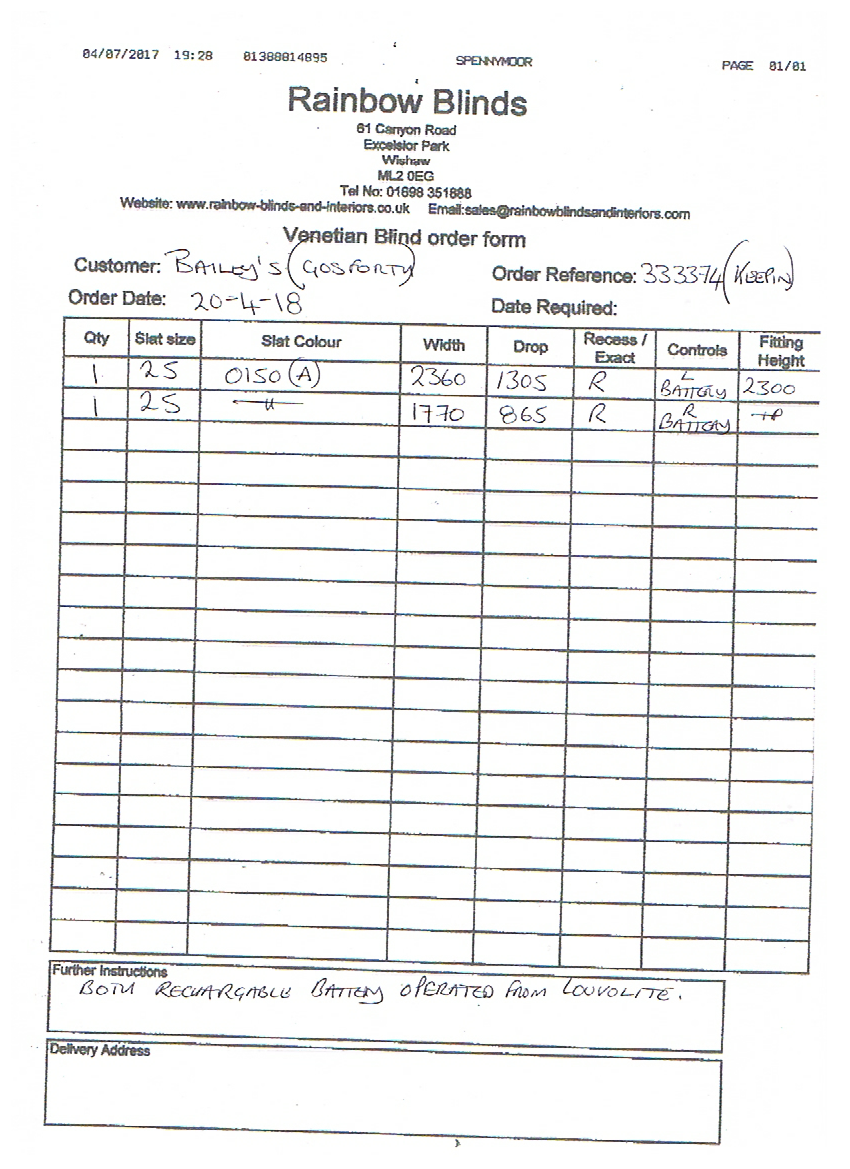 04/07/2017 19:28 01388814895 SPENNYMOOR PAGE 01/01
Rainbow Blinds
61 Canyon Road
Excelsior Park
Wishaw
ML2 0EG
Tel No: 01698 351888
Website: www.rainbow-blinds-and-interiors.co.uk Email:sales@rainbowblindsandinteriors.com
Venetian Blind order form
Customer: BAILEY'S (GOSFORTH) Order Reference: 333374 (KEEPIN)
Order Date: 20-4-18 Date Required:
Qty Slat size Slat Colour Width Drop Recess / Exact Controls Fitting Height
1 25 0150 (A) 2360 1305 R L BATTERY 2300
1 25 —"— 1770 865 R R BATTERY
Further Instructions
BOTH RECHARGABLE BATTERY OPERATED FROM LOUVOLITE.
Delivery Address